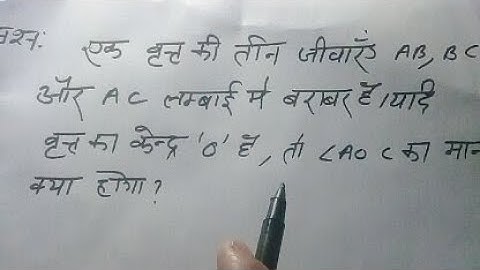 प्रश्न: एक वृत्त की तीन जीवाएँ AB, BC
और AC लम्बाई में बराबर हैं। यदि
वृत्त का केन्द्र 'O' है, तो ∠AOC का मान
क्या होगा?